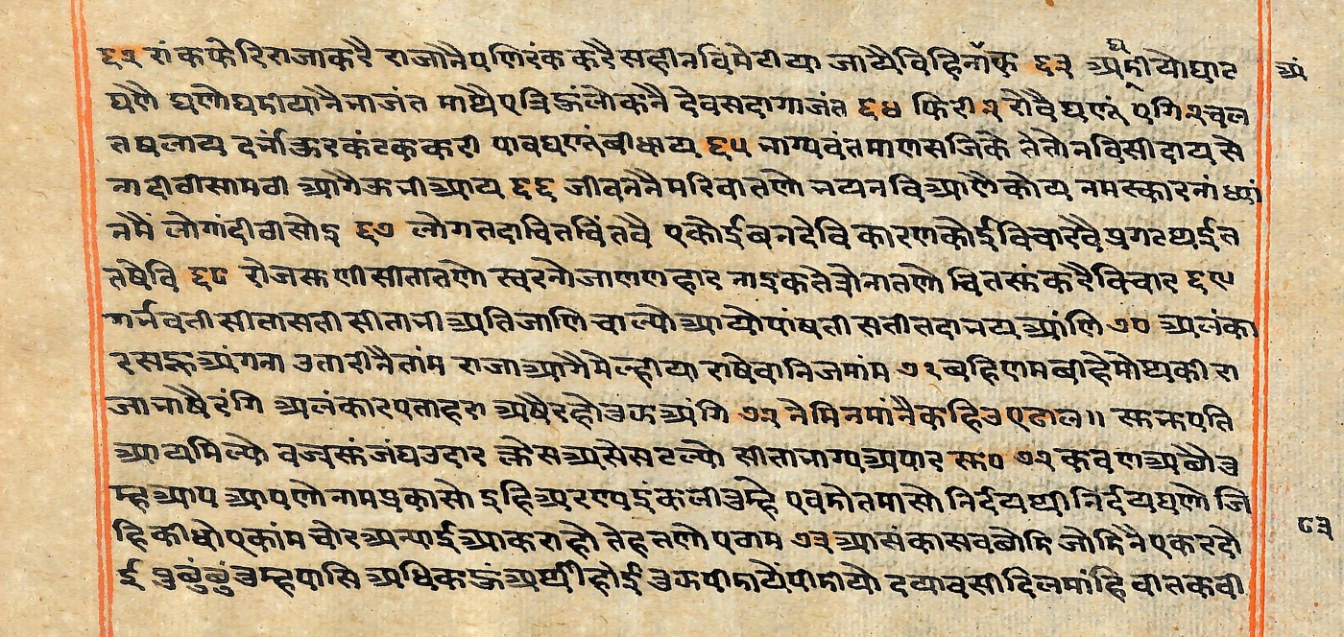 ६२ रांक फेरि राजा करै राजानै पणि रंक करै सही न विमेटीया जायै विहिनाॅ फ ६३ अडीयो घाट
घणै घणो घडीयोनै भाजंत माथै ए त्रिऊं लोकनै देव सदा गाजंत ६४ फिरी २ रोवै घणुं पगि २ चल
त षलाय दर्भाङ्कुर कंटक करी पाव घणुं वीधाय ६५ भाग्यवंत माणस जिके तेतो न विसीदाय से
ना दीवी सामवी आगै ऊभी आय ६६ जीवननै मरिवा तणो भय नवि आलै कोय नमस्कारनां ध्यां
नमैं लोगां दीवी सोइ ६७ लोग तदा चित चिंतवै ए कोई वनदेवि कारण कोई विचारवै प्रगट थई त
तषेवि ६८ रोज सुणी सीता तणो स्वरनो जाणणहार नाइक ते त्रौना तणो चित सुं करै विचार ६९
गर्भवती सीता सती सीता भी अति जाणि चाल्यो आयो पांषती सती तदा भय आंणि ७० अलंका
र सहु अंगना उतारीनै तांम राजा आगै मेल्हीया राषेवा निज मांम ७१ बहि णाम बीहे मोथकी रा
जा भाषै रंगि अलंकार ए ताहरा अषै रहो तुझ अंगि ७२ नेमि नमांनै कहि उ ए ढाल॥ सु भूपति
आय मिल्यो वज्रसुं जंघ उदार क्लेस असेस टल्यो सीता भाग्य अपार सु० ७२ कवण अछो तु
म्ह आप आपणो नाम प्रकासो इहि अरण्य इंकली तुम्हे एवडो तमासो निर्दय थी निर्दय घणो जि
हि कीधो ए कांम चोर अन्याई आकरा हो तेह तणो ए वाम ७३ आसंका सब छोडि जोडिनै ए कर दो
ई तु छुं छुं तुम्ह पासि अधिक ऊं अर्थी होई तुझ पीडायैं पीडायो दया वसी दिलमांहि वात कवी
अं
८३